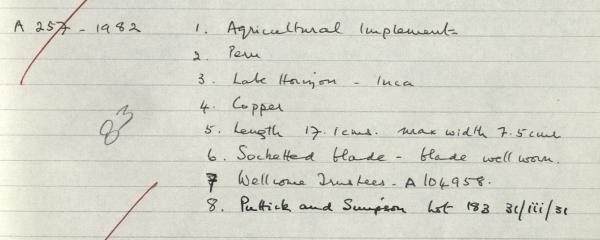 A 257 - 1982 1. Agricultural Implement
2. Peru
3. Late Horizon - Inca
4. Copper
83
5. Length 17.1 cms. max width 7.5 cms
6. Socketted blade - blade well worn.
7 Wellcome Trustees - A104958.
8. Puttick and Simpson Lot 183 31/iii/31